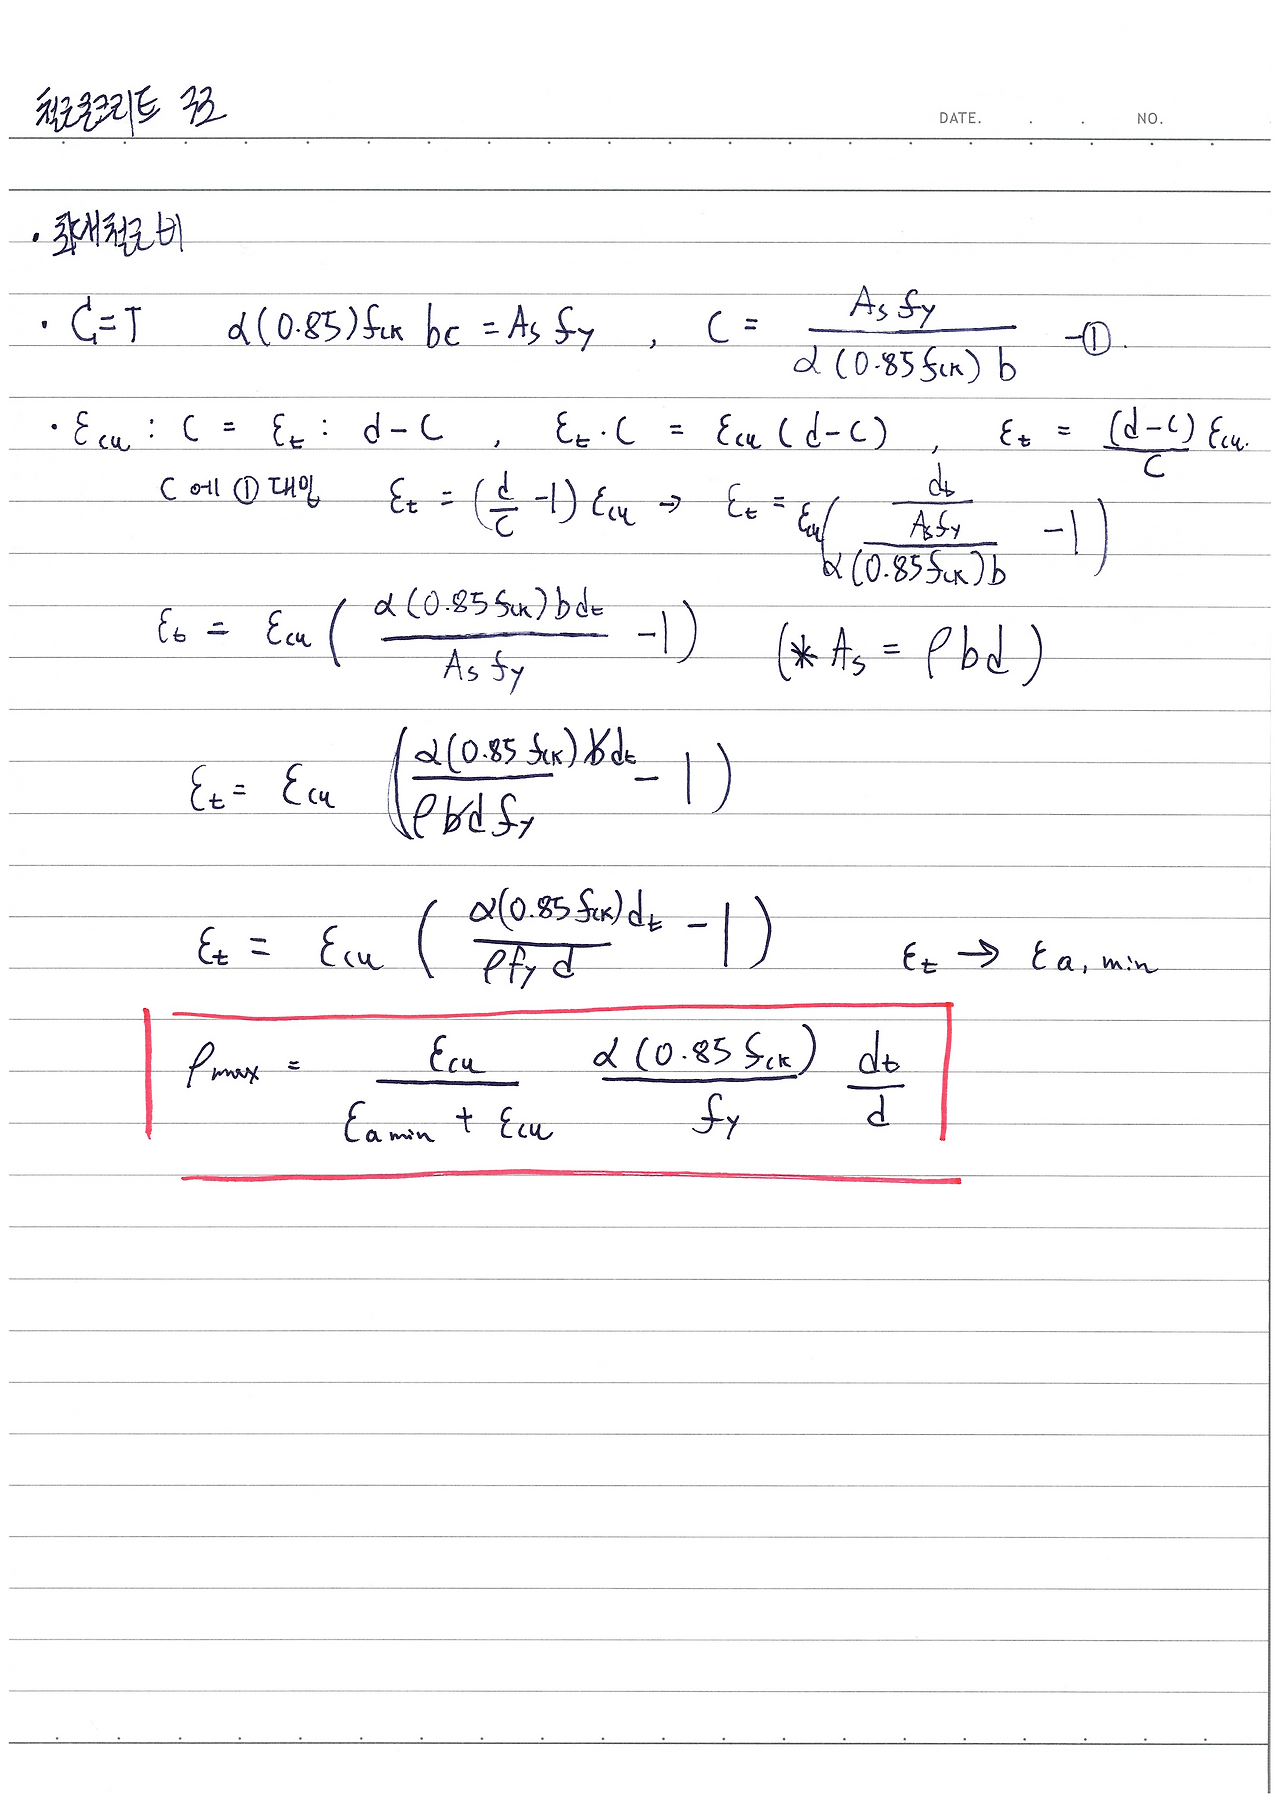 철근콘크리트 구조
DATE. . . NO.
· 최대철근비
· C=T α(0.85)fck bc = As fy , C = As fy / α(0.85fck) b -①.
· εcu : C = εt : d-C , εt·C = εcu (d-C) , εt = (d-C)/C εcu.
C에 ① 대입 εt = (d/C -1) εcu → εt = εcu( dt / (As fy / α(0.85fck)b) -1)
εt = εcu ( α(0.85fck)bdt / As fy -1) (* As = ρbd)
εt = εcu ( α(0.85 fck)bdt / ρbd fy - 1)
εt = εcu ( α(0.85fck)dt / ρfy d -1) εt → εa,min
ρmax = εcu / εa min + εcu α(0.85 fck) / fy dt / d